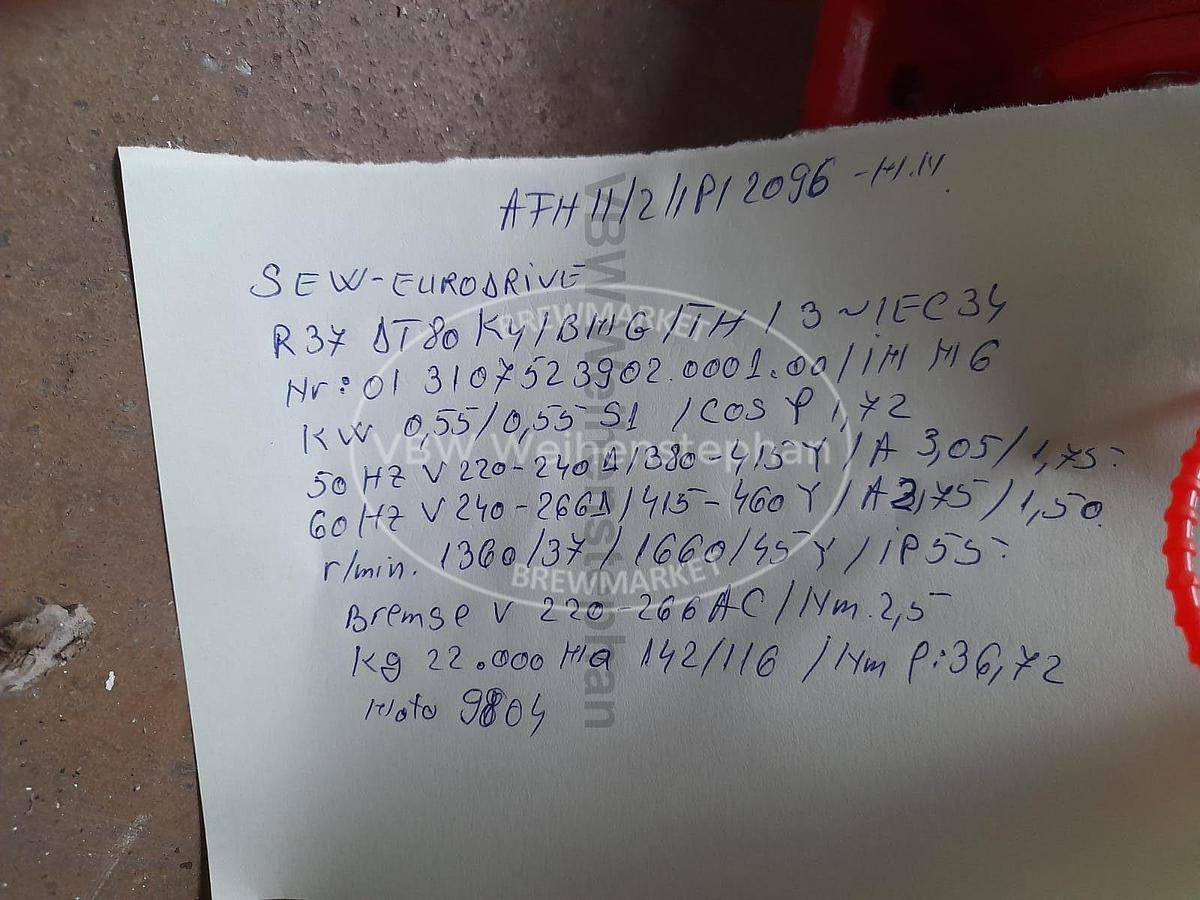 ATH 11/2/1P/2096 -H.M.
SEW-EURODRIVE
R37 DT80 K4/BMG/TH / 3~IEC34
Nr: 01 3107523902.0001.00/iM M6
KW 0,55/0,55 S1 /COS φ 1,72
50 HZ V 220-240 Δ/380-415 Y / A 3,05/1,75
60 HZ V 240-266Δ/415-460 Y / A 2,75/1,50
r/min. 1360/37 / 1660/45 Y / iP55
Bremse V 220-266 AC / Nm 2,5
Kg 22.000 Ma 142/116 / Nm i:36,72
9804
BREWMARKET
VBW Weihenstephan
BREWMARKET
VBW Weihenstephan